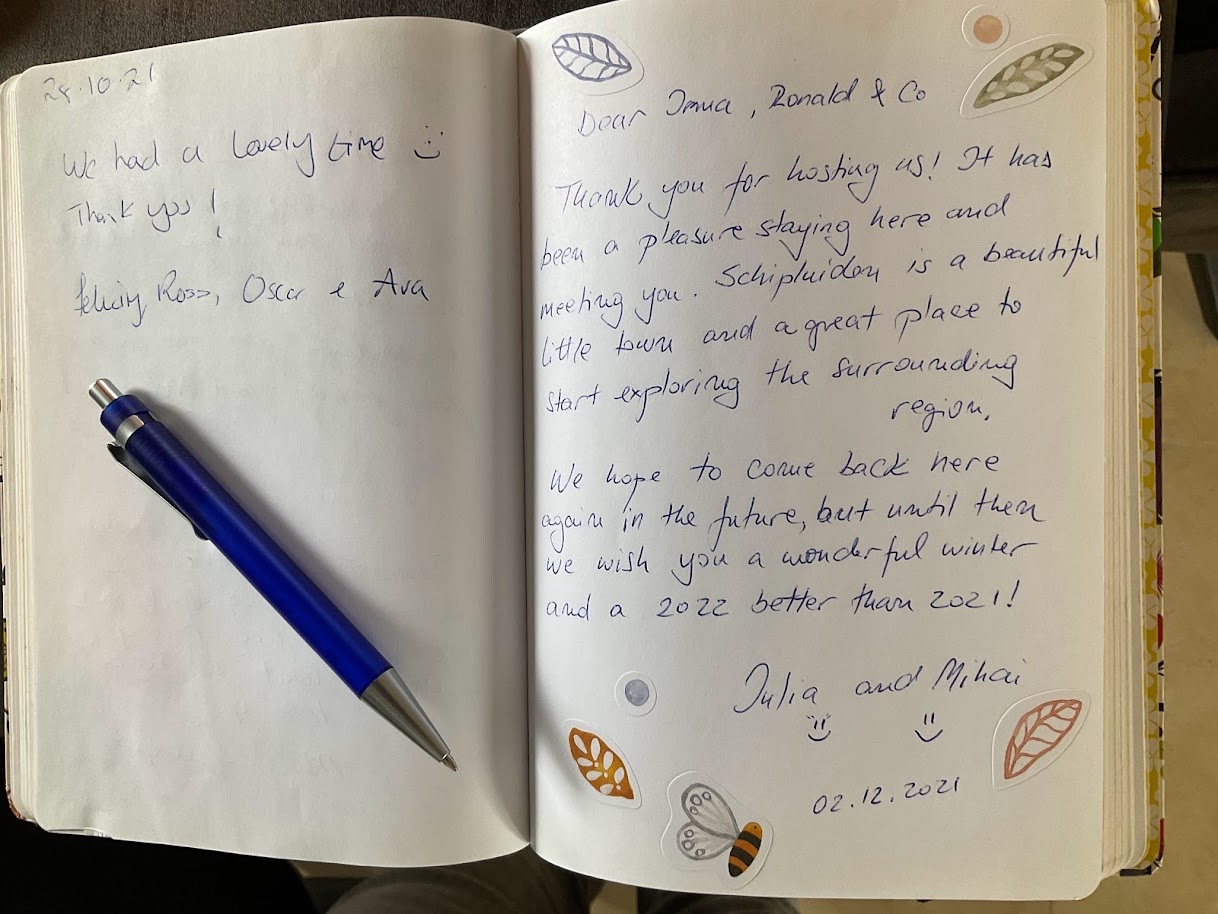 28.10.21
We had a lovely time
Thank you!
Felicity, Ross, Oscar e Ava
Dear Irma, Ronald & Co
Thank you for hosting us! It has
been a pleasure staying here and
meeting you. Schipluiden is a beautiful
little town and a great place to
start exploring the surrounding
region.
We hope to come back here
again in the future, but until then
we wish you a wonderful winter
and a 2022 better than 2021!
Iulia and Mihai
02.12.2021